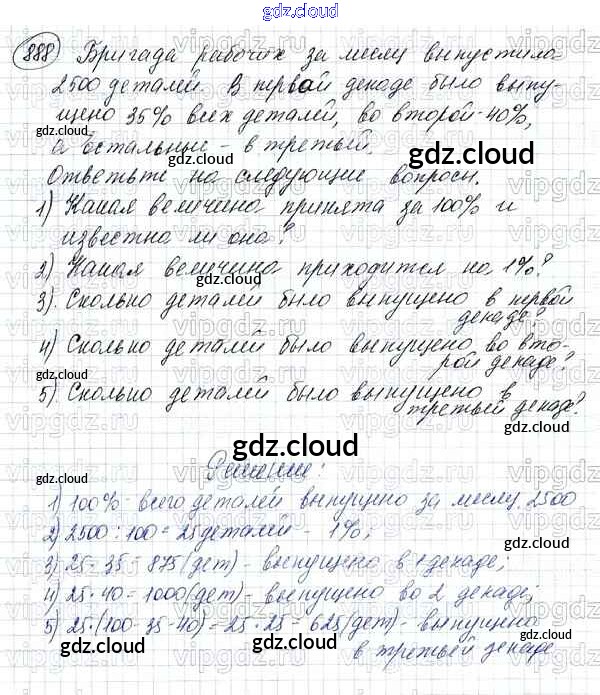 gdz.cloud
888 Бригада рабочих за месяц выпустила
2500 деталей. В первой декаде было выпу-
щено 35% всех деталей, во второй - 40%,
а остальные - в третьей.
Ответьте на следующие вопросы.
1) Какая величина принята за 100% и
известна ли она?
2) Какая величина приходится на 1%?
3) Сколько деталей было выпущено в первой
декаде?
4) Сколько деталей было выпущено во вто-
рой декаде?
5) Сколько деталей было выпущено в
третьей декаде?
gdz.cloud
Решение:
1) 100% - всего деталей выпущено за месяц 2500
2) 2500 : 100 = 25 деталей - 1%;
3) 25 · 35 = 875 (дет) - выпущено в 1 декаде;
4) 25 · 40 = 1000 (дет) - выпущено во 2 декаде;
5) 25 · (100 - 35 - 40) = 25 · 25 = 625 (дет) - выпущено
в третьей декаде